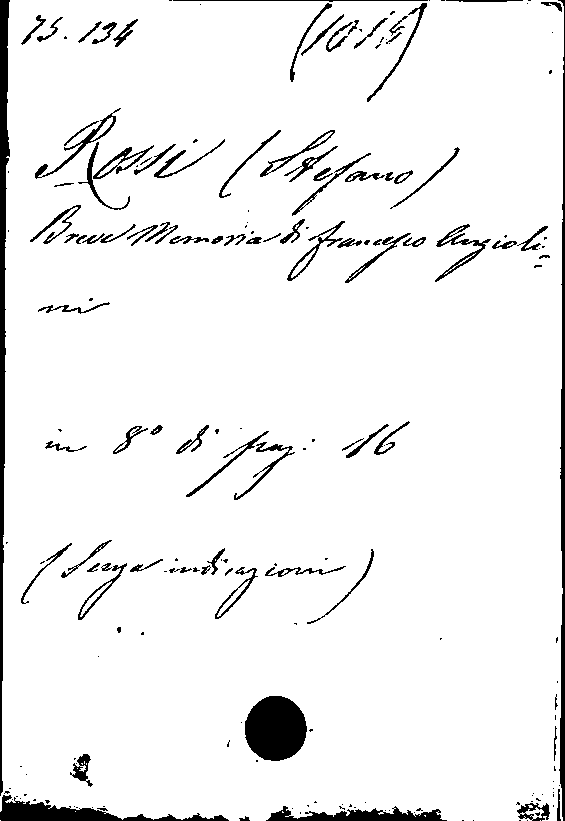 75. 134 (10.15)
Rossi (Stefano)
Breve Memoria di Francesco Angioli=
ni
in 8° di pag: 16
(Senza indicazioni)